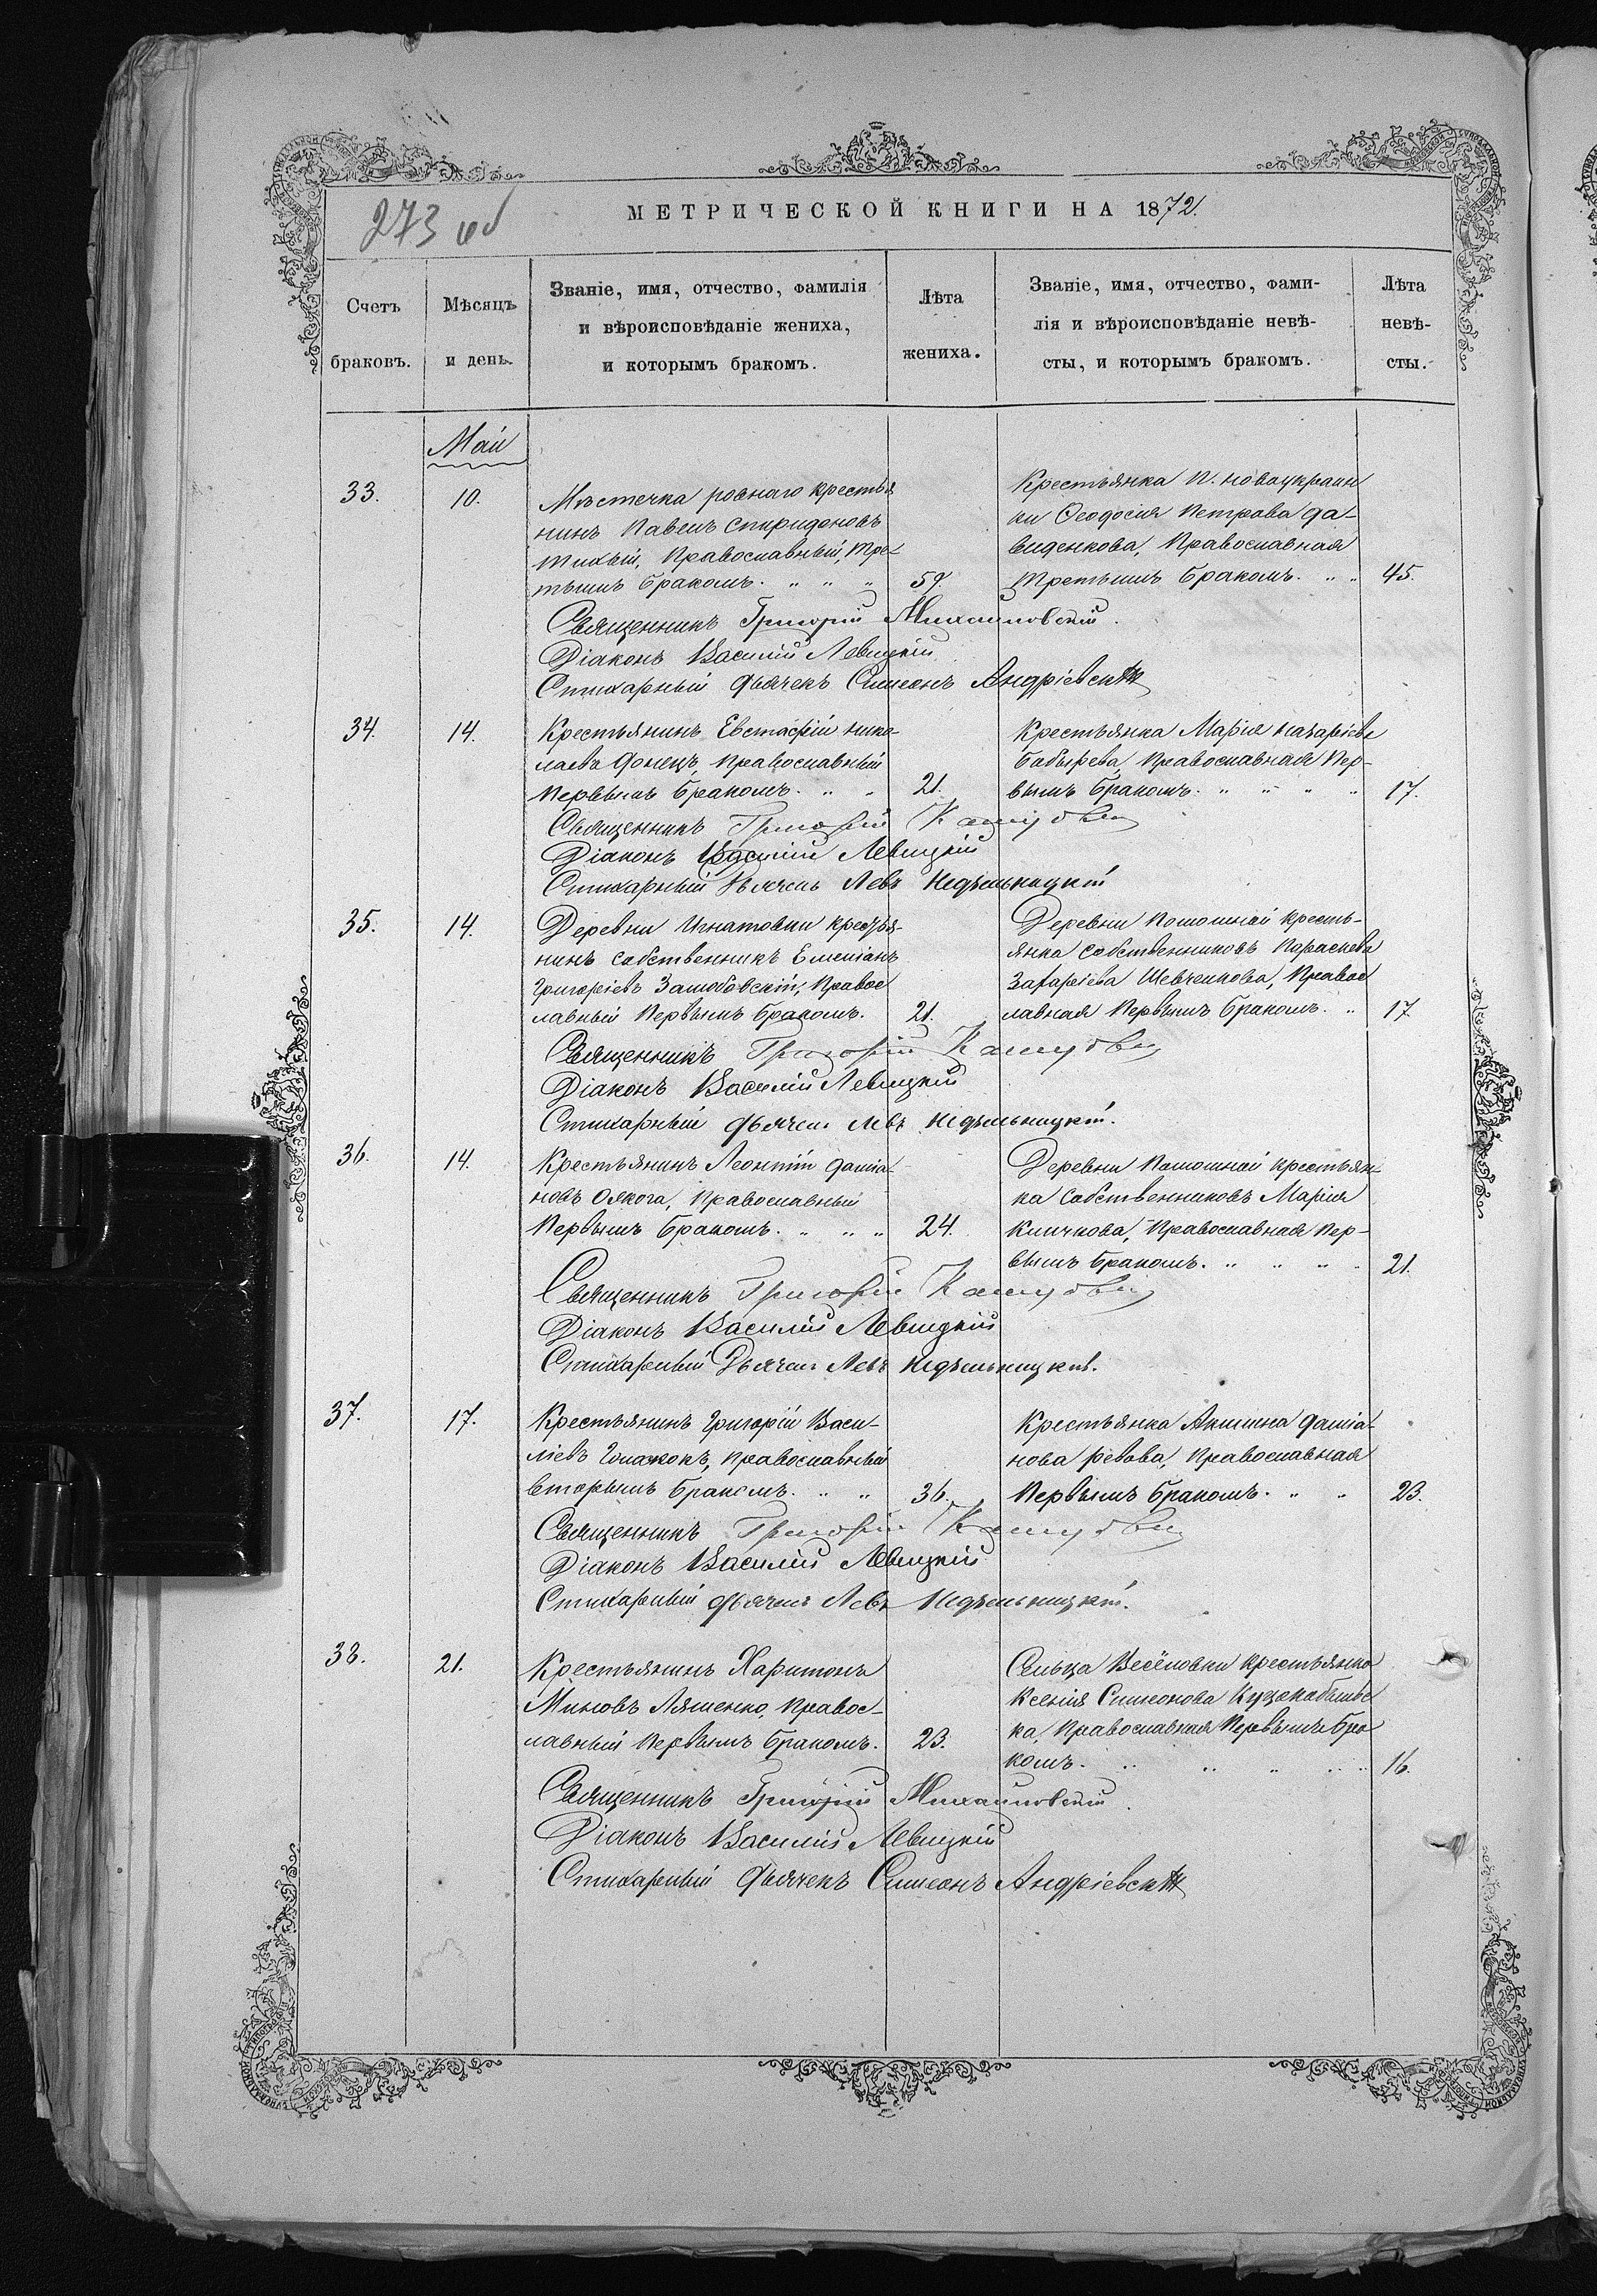 273 об
МЕТРИЧЕСКОЙ КНИГИ НА 1872.
Счетъ браковъ.
Мѣсяцъ и день.
Званіе, имя, отчество, фамилія
и вѣроисповѣданіе жениха,
и которымъ бракомъ.
Лѣта жениха.
Званіе, имя, отчество, фами-
лія и вѣроисповѣданіе невѣ-
сты, и которымъ бракомъ.
Лѣта невѣ-
сты.
Май
33. 10.
Мѣстечка ровнаго крестья
нинъ Павелъ Спиридоновъ
Тихій, Православный, Тре-
тьимъ бракомъ. 59.
Крестьянка П. новоукраин
ки Феодосия Петрова Да-
виденкова, Православная
Третьимъ бракомъ. 45.
Священникъ Григорій Михайловскій.
Діаконъ Василій Левицкій
Стихарный дьячекъ Симеонъ Андріевскій
34. 14.
Крестьянинъ Евстафій нико-
лаевъ Донецъ, Православный
Первымъ бракомъ. 21.
Крестьянка Марія назаріева
Бабырева Православная Пер-
вымъ бракомъ. 17.
Священникъ Григорій
Діаконъ Василій Левицкій
Стихарный Дьячекъ Левъ Недѣльницкій
35. 14.
Деревни Игнатовки крестья-
нинъ собственникъ Емеліанъ
Григоріевъ Православ
лавный Первымъ бракомъ. 21.
Деревни Помошной кресть-
янка собственниковъ Параскева
Захаріева Шевченкова, Правос
лавная Первымъ бракомъ. 17
Священникъ Григорій
Діаконъ Василій Левицкій
Стихарный дьячекъ Левъ Недѣльницкій.
36. 14.
Крестьянинъ Леонтій Даміа-
новъ Православный
Первымъ бракомъ. 24.
Деревни Помошной крестьян-
ка собственниковъ Марія
Кличкова, Православная Пер-
вымъ бракомъ. 21.
Священникъ Григорій
Діаконъ Василій Левицкій
Стихарный Дьячекъ Левъ Недѣльницкій.
37. 17.
Крестьянинъ Григорій Васи-
ліевъ Православный
вторымъ бракомъ. 36.
Крестьянка Акилина Даміа-
нова ревова, Православная
Первымъ бракомъ. 23.
Священникъ Григорій
Діаконъ Василій Левицкій
Стихарный дьячекъ Левъ Недѣльницкій.
38. 21.
Крестьянинъ Харитонъ
Миновъ Ляшенко, Правос-
лавный Первымъ бракомъ. 23.
Сельца Весёловки крестьянка
Ксенія Симеонова
ка, Православная Первымъ бра
комъ. 16.
Священникъ Григорій Михайловскій.
Діаконъ Василій Левицкій
Стихарный дьячекъ Симеонъ Андріевскій